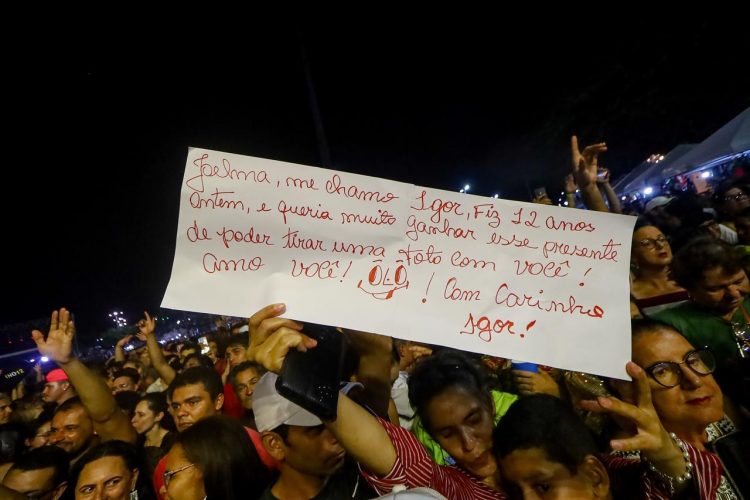 Joelma, me chamo Igor, Fiz 12 anos
ontem, e queria muito ganhar esse presente
de poder tirar uma foto com você!
amo você! ! Com Carinho
Igor!